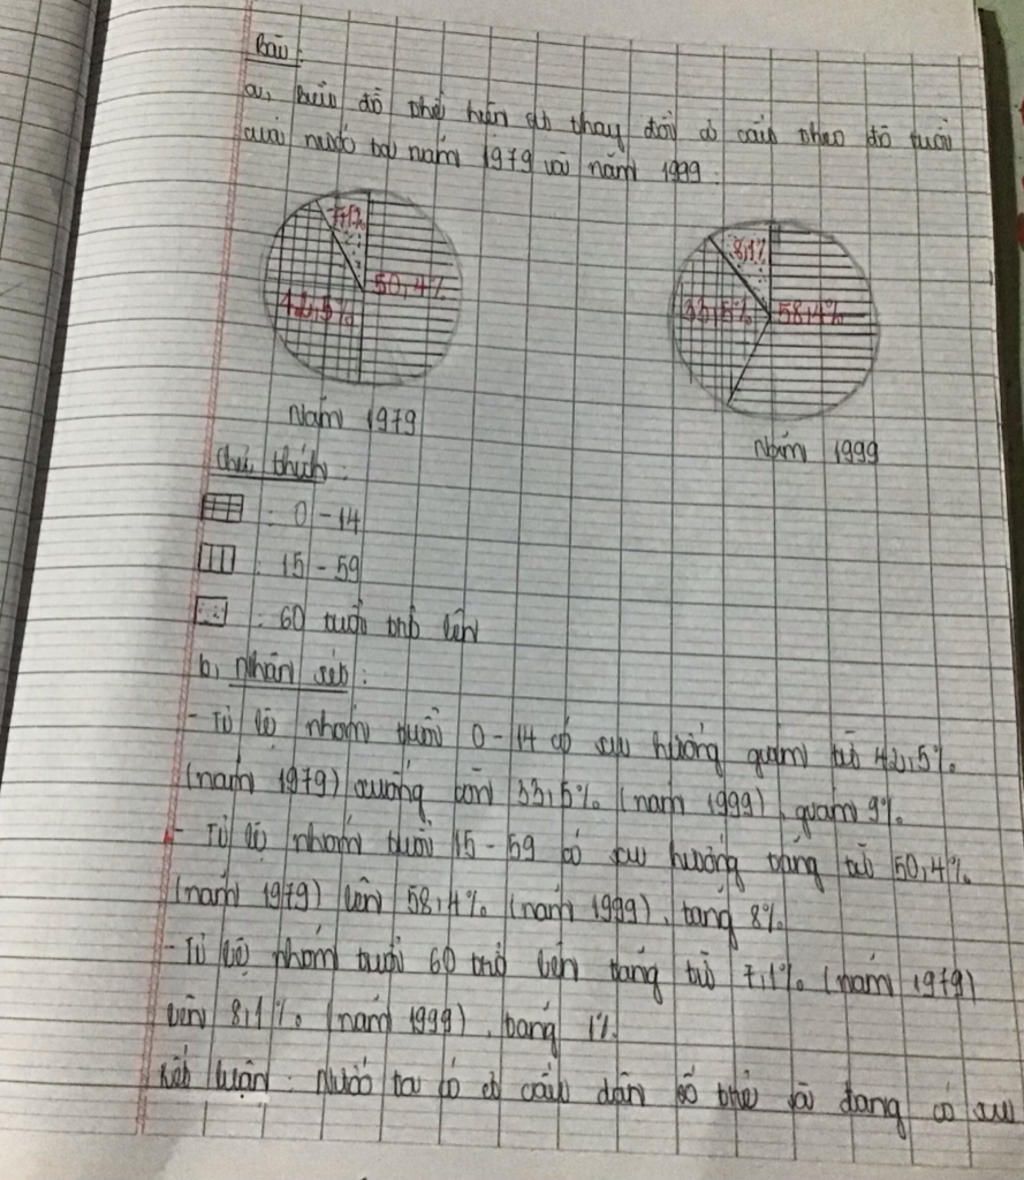 Bài:
a, Biểu đồ thể hiện sự thay đổi cơ cấu theo độ tuổi
của nước ta năm 1979 và năm 1999.
7,1%
50,4%
42,5%
8,1%
33,5%
58,4%
Năm 1979
Năm 1999
Chú thích:
: 0-14
: 15-59
: 60 tuổi trở lên
b, Nhận xét:
- Tỉ lệ nhóm tuổi 0-14 có xu hướng giảm từ 42,5%
(năm 1979) xuống còn 33,5% (năm 1999), giảm 9%.
- Tỉ lệ nhóm tuổi 15-59 có xu hướng tăng từ 50,4%
(năm 1979) lên 58,4% (năm 1999), tăng 8%.
- Tỉ lệ nhóm tuổi 60 trở lên tăng từ 7,1% (năm 1979)
lên 8,1% (năm 1999), tăng 1%.
Kết luận: Nước ta có cơ cấu dân số trẻ và đang có xu